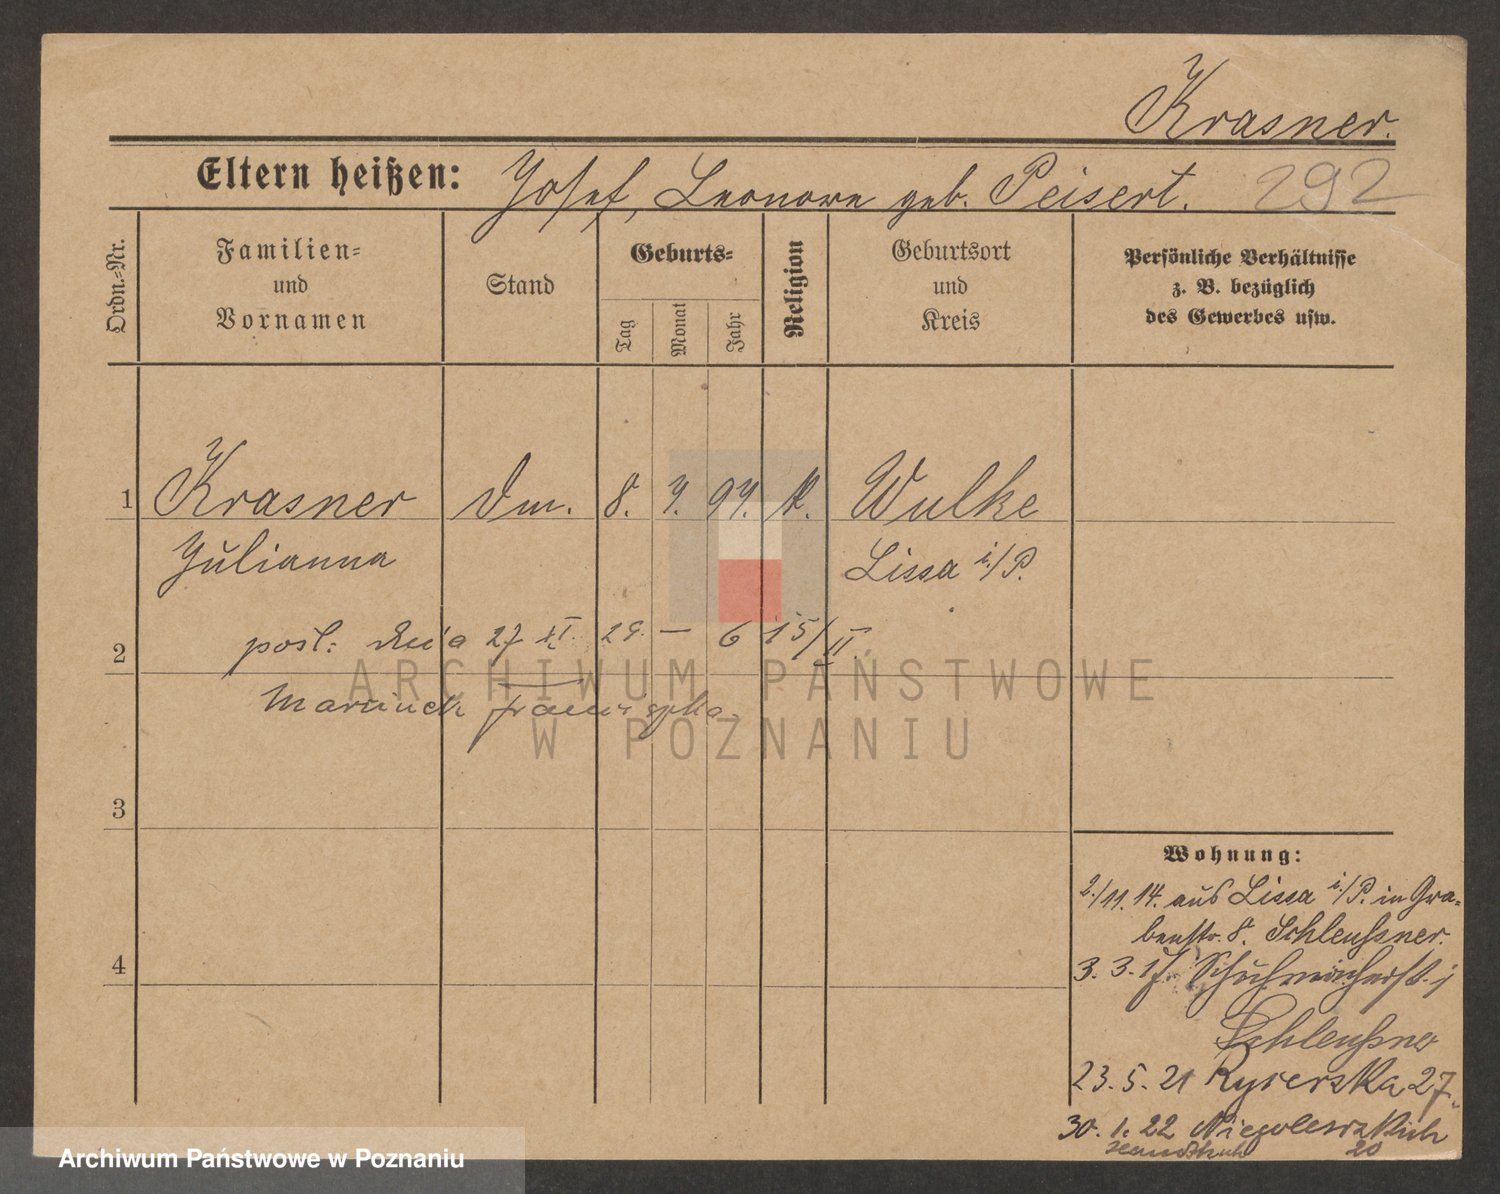 Krasner.
Eltern heißen: Josef, Leonore geb. Peisert. 292
Ordn.-Nr.
Familien- und Vornamen
Stand
Geburts-
Tag
Monat
Jahr
Religion
Geburtsort und Kreis
Persönliche Verhältnisse
z. B. bezüglich
des Gewerbes usw.
1 Krasner 8. 94. K. Wulke
Julianna Lissa i./P.
2 posł: dnia 27 XI. 29 — 6 15/II
Marcinek Franciszka
ARCHIWUM PAŃSTWOWE
W POZNANIU
3
4
Wohnung:
2./11. 14. aus Lissa i./P. in Gra-
benstr. 8. Schleußner.
3. 3. 17.
Schleußner
23. 5. 21 Rycerska 27.
30. 1. 22 Niegolewskich
20
Archiwum Państwowe w Poznaniu